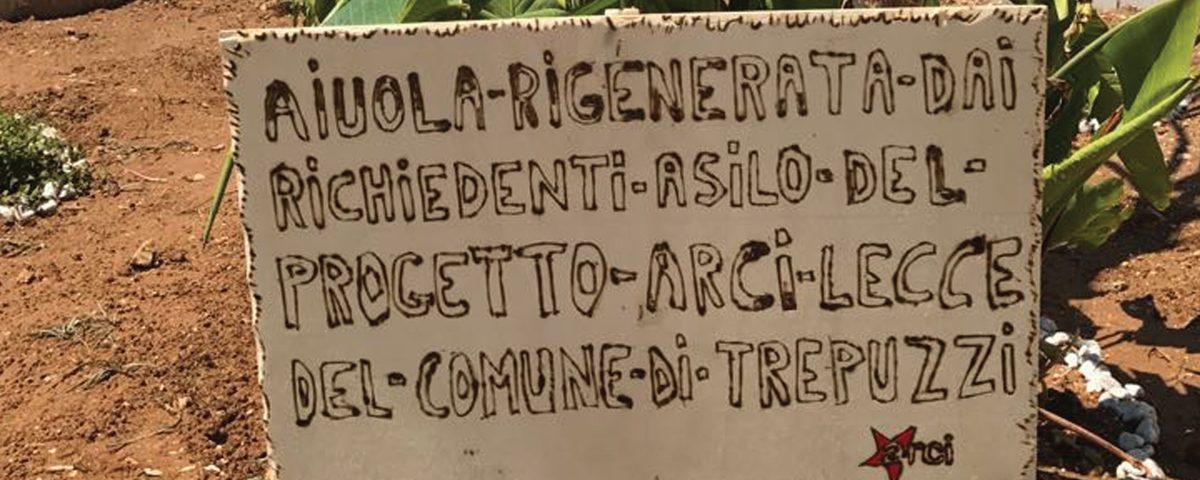 AiUOLA-RiGENERATA-DAi
RiCHiEDENTi-ASiLO-DEL-
PROGETTO-ARCi-LECCE
DEL-COMUNE-Di-TREPUZZi
arci